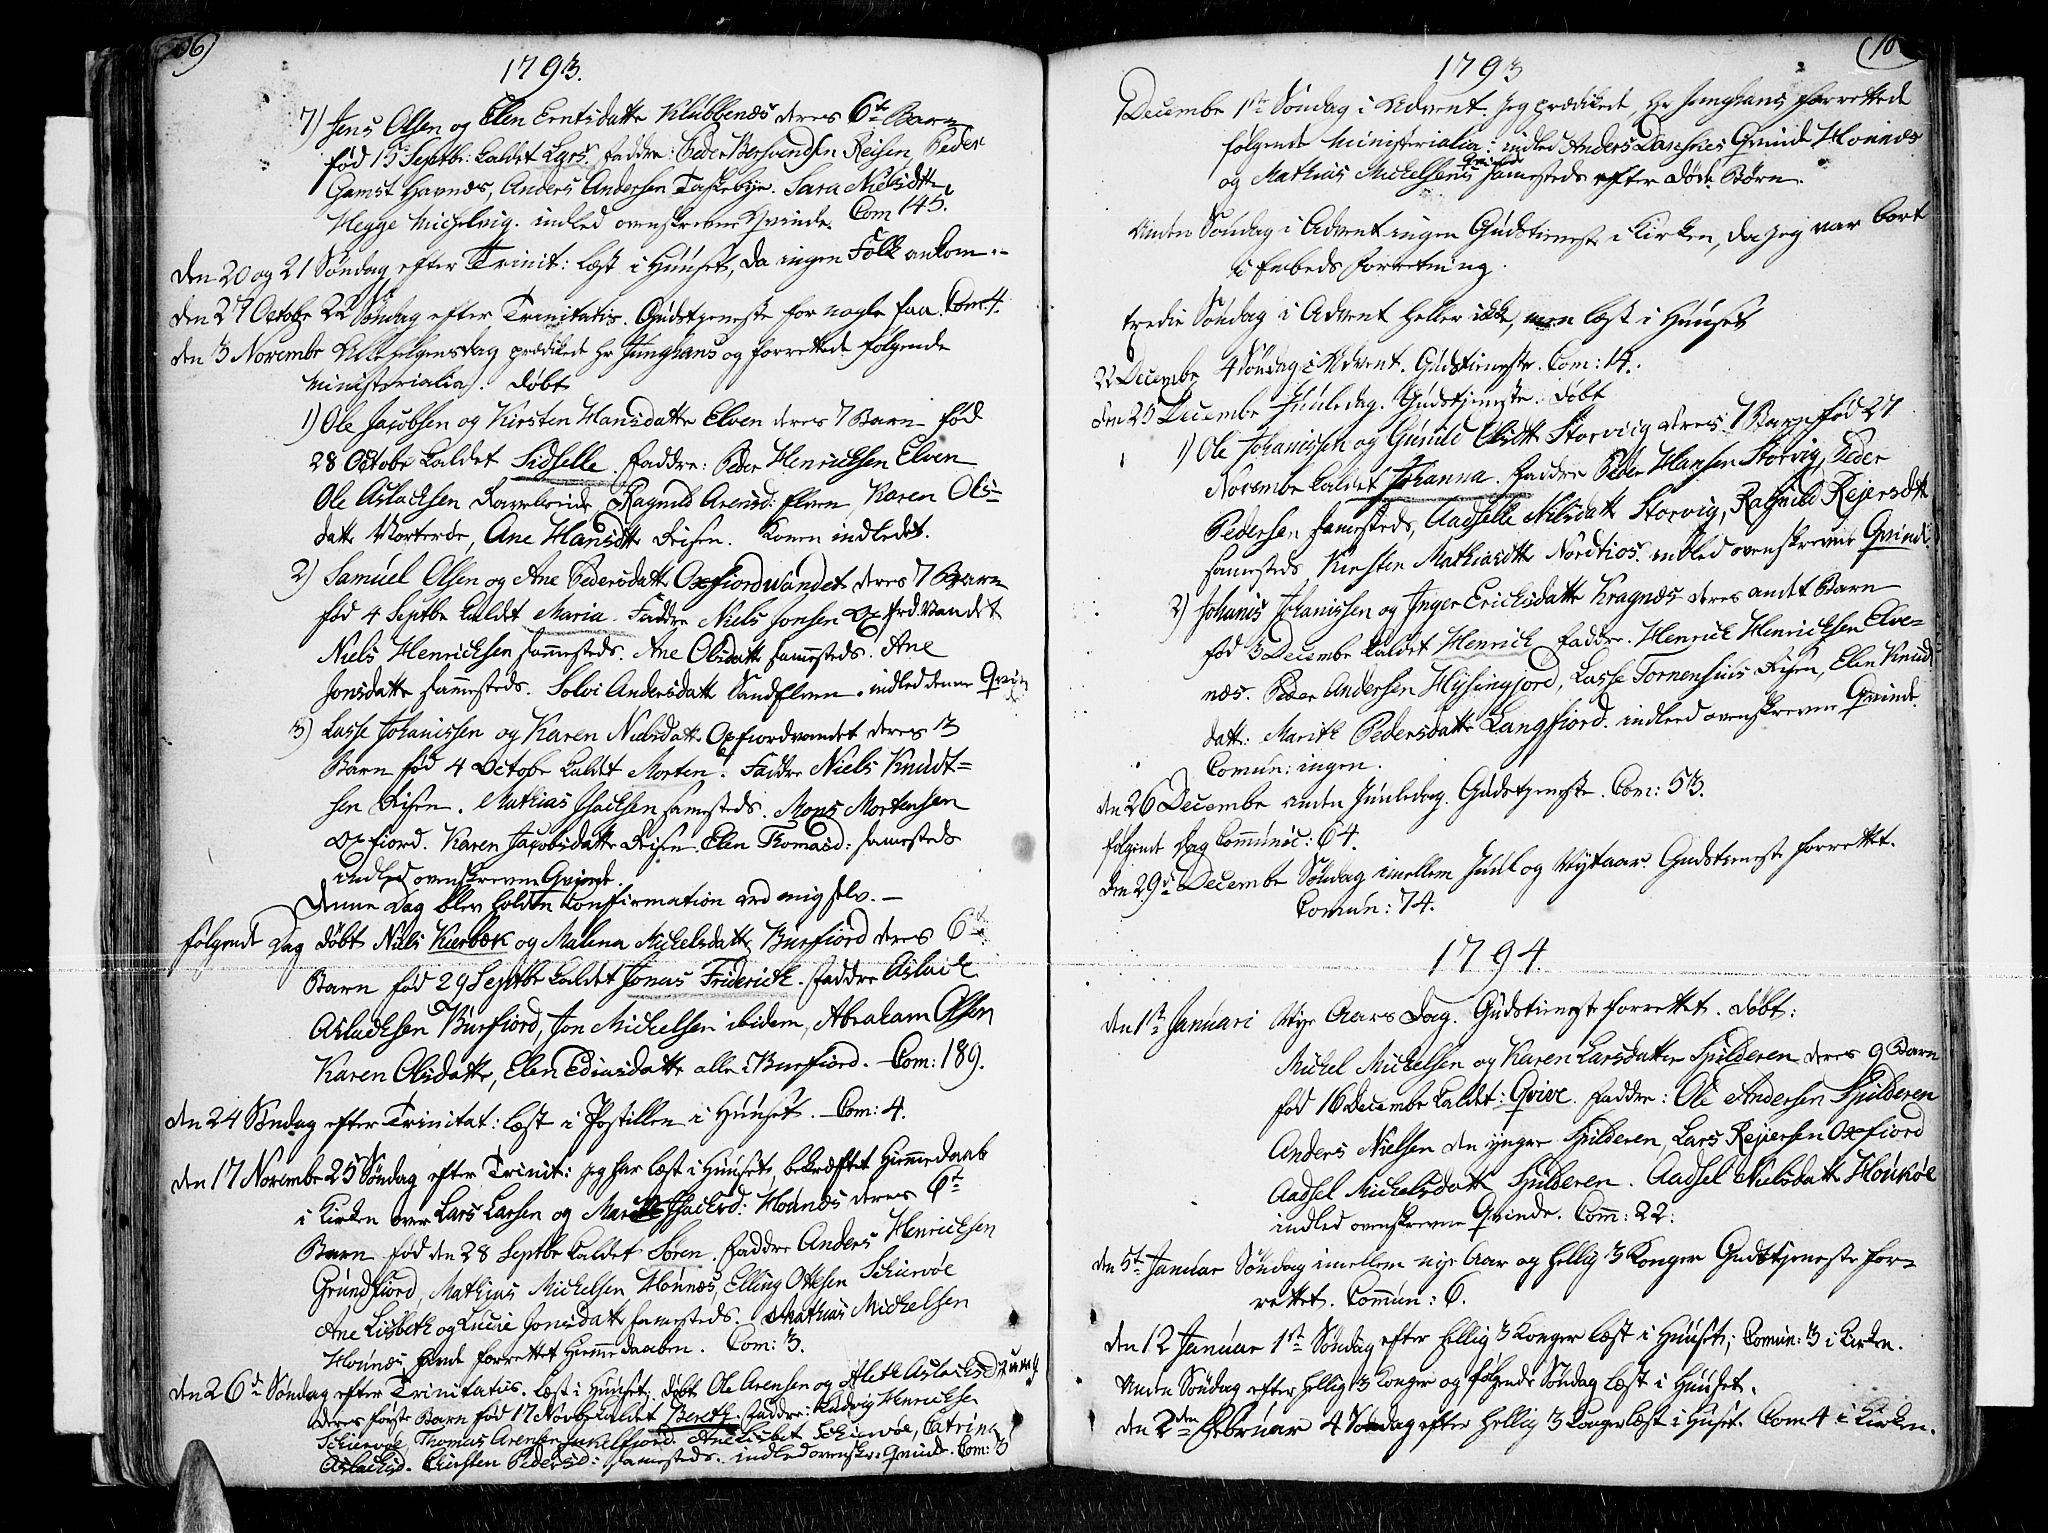 1793.
7) Jens Olsen og Elen Erntsdatte Klubbenæs deres 6te Barn
fød 15 Septbr: kaldet Lars. Faddre: Peder Bersvendsen Reisen Peder
Gamst Havnæs, Anders Andersen Taskebye. Sara Nielsdtte
Hegge Michelvig. indled ovenskrevne Qvinde. Com 145.
den 20 og 21 Søndag efter Trinit: læst i Huuset, da ingen Folk ankom.
den 27 Octobr 22 Søndag efter Trinitatis. Gudstjeneste for nogle faa. Com: 4.
den 3 Novembr Allehelgensdag prædikede Hr Junghans og forrettede følgende
Ministerialia: døbt
1) Ole Jacobsen og Kirsten Hansdatte Elven deres 7 Barn fød
28 Octobr kaldet Sidselle. Faddre: Peder Henrichsen Elven
Ole Aslachsen Ravelseide, Ragnild Arensd: Elven, Karen Ols-
datte Vorterøe, Ane Hansdtte Reisen. Konen indledet.
2) Samuel Olsen og Ane Pedersdatte Oxfiordvandet deres 7 Barn
fød 4 Septbr kaldet Maria. Faddre Niels Jonsen Oxfiordvandet
Niels Henrichsen sammesteds. Ane Olsdatte sammesteds. Ane
Jonsdatte sammesteds. Solvi Andersdatte Sandelven. indled denne Qvin
3) Lasse Johanissen og Karen Nielsdatte Oxfiordvandet deres 13
Barn fød 4 Octobr kaldet Morten. Faddre Niels Knudt-
sen Reisen. Mathias Isachsen samesteds. Mons Mortensen
Oxfiord. Karen Jacobsdatte Reisen. Elen Thomasd: samesteds
indled ovenskrevne Qvinde.
Denne Dag blev holden Confirmation ved mig selv. -
følgende Dag døbt Niels Kierbæk og Malena Michelsdatte Burfiord deres 6te
Barn fød 29 Septbr kaldet Jonas Friderich. Faddre Aslach
Aslachsen Burfiord, Jon Michelsen ibidem, Abraham Olsen
Karen Olsdatte, Elen Ediasdatte alle i Burfiord. - Com: 189.
den 24 Søndag efter Trinitat: læst i Postillen i Huuset. - Com: 4.
den 17 Novembr 25 Søndag efter Trinit: jeg har læst i Huuset, bekræftet Hiemmedaab
i Kirken over Lars Larsen og Isachsd: Hounæs deres 6te
Barn fød den 28 Septbr kaldet Søren. Faddre Anders Henrichsen
Grundfiord, Mathias Michelsen Hounæs, Elling Ottesen Schiervøe
Ane Lisbeth og Lucie Jonsdatte samesteds. Mathias Michelsen
Hounæs havde forrettet Hiemmedaaben. Com: 3.
den 26de Søndag efter Trinitatis. læst i Huuset. døbt Ole Arensen og Aleth Aslachsd
deres første Barn fød 17 Novbr kaldet Bereth. Faddre: Ludvig Henrichsen
Schiervøe, Thomas Arensen Jøkelfiord, Ane Lisbet Schiervøe, Catrina
Aslachsd. Kirsten Pedersd: samesteds. indled ovenskr: Qvinde. Com: 3
1793
1 Decembe 1ste Søndag i Advent. Jeg prædikede, Hr Junghans forrettede
følgende Ministerialia: indled Anders Qvinde Hounæs
og Mathias Michelsens Qvinde samesteds efter døde Børn.
Anden Søndag i Advent ingen Gudstieneste i Kirken, da jeg var bort
i Embeds Forretning.
tredie Søndag i Advent heller ikke, men læst i Huuset
22 Decembe 4 Søndag i Advent. Gudstieneste. Com: 14.
den 25 Decembe Juuledag. Gudstjeneste. døbt
1) Ole Johanissen og Gunild Olsdtte Storviig deres 7 Barn fød 27
Novembe kaldet Johanna. Faddre Peder Hansen Storvig, Peder
Pedersen samesteds, Aadselle Nilsdatte Storvig, Ragnild Rejersdtte
samesteds, Kirsten Mathiasdtte Nordtios. indled ovenskrevne Qvinde.
2) Johanis Johanissen og Inger Erichsdatte Kragnæs deres andet Barn
fød 3 Decembe kaldet Henrich. Faddre. Henrich Henrichsen Elve-
næs. Peder Andersen Hysingjord, Lasse Tornensiis Reisen, Elen Knud
datte: Marith Pedersdatte Langfiord. indleed ovenskrevne Qvinde.
Comun: ingen.
den 26 Decembe anden Juuledag. Gudstjeneste. Com: 53.
følgende Dag Communic: 64.
den 29de Decembe Søndag imellem Juul og Nytaar. Gudstieneste forrettet.
Comun: 74.
1794.
den 1ste Januari Nye Aars Dag. Gudstieneste forrettet. døbt:
Michel Michelsen og Karen Larsdatter Spilderen deres 9 Barn
fød 16 Decembe kaldet: Qvive. Faddre: Ole Andersen Spilderen
Anders Nielsen den yngre Spilderen, Lars Rejersen Oxfiord
Aadsel Michelsdatte Spilderen. Aadsel Nielsdatte Houkøe
indled ovenskrevne Qvinde. Com: 22:
den 5te Januar Søndag imellem nye Aar og hellig 3 Konger Gudstjeneste for-
rettet. Comun: 6.
den 12 Januar 1ste Søndag efter Hellig 3 Konger læst i Huuset; Comun: 3 i Kirken.
Anden Søndag efter Hellig 3 Konger og følgende Søndag læst i Huuset.
den 2den Februar 4 Søndag efter Hellig 3 Konger læst i Huset. Com 4 i Kirken.